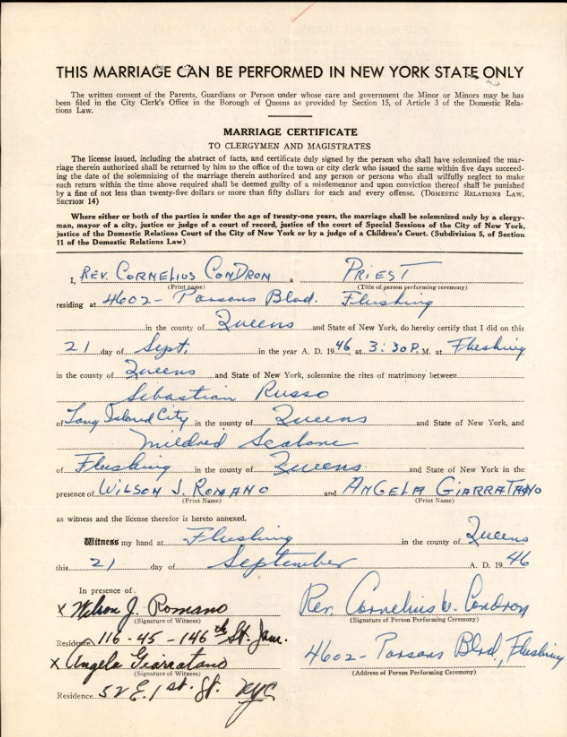 THIS MARRIAGE CAN BE PERFORMED IN NEW YORK STATE ONLY
The written consent of the Parents, Guardians or Person under whose care and government the Minor or Minors may be
been filed in the City Clerk's Office in the Borough of Queens as provided by Section 15, of Article 3 of the Domestic Rela-
tions Law.
MARRIAGE CERTIFICATE
TO CLERGYMEN AND MAGISTRATES
The license issued, including the abstract of facts, and certificate duly signed by the person who shall have solemnized the mar-
riage therein authorized shall be returned by him to the office of town or city clerk who issued the same within five days succeed-
ing the date of the solemnizing of the marriage therein authorized and any person or persons who shall wilfully neglect to make
such return within the time above required shall be deemed guilty of a misdemeanor and upon conviction thereof shall be punished
by a fine of not less than twenty-five dollars or more than fifty dollars for each and every offense. (DOMESTIC RELATIONS LAW,
SECTION 14)
Where either or both of the parties is under the age of twenty-one years, the marriage shall be solemnized only by a clergy-
man, mayor of a city, justice or judge of a court of record, justice of the court of Special Sessions of the City of New York,
justice of the Domestic Relations Court of the City of New York or by a judge of a Children's Court. (Subdivision 5, of Section
11 of the Domestic Relations Law)
I, REV. CORNELIUS CONDRON a PRIEST
(Print name) (Title of person performing ceremony)
residing at 4602 - Parsons Blvd. Flushing
in the county of Queens and State of New York, do hereby certify that I did on this
21 day of Sept. in the year A. D. 1946 at 3:30 P. M. at Flushing
in the county of Queens and State of New York, solemnize the rites of matrimony between
Sebastian Russo
of Long Island City in the county of Queens and State of New York, and
Mildred Scalone
of Flushing in the county of Queens and State of New York in the
presence of WILSON J. ROMANO and ANGELA GIARRATANO
(Print Name) (Print Name)
as witness and the license therefor is hereto annexed.
Witness my hand at Flushing in the county of Queens
this 21 day of September A. D. 1946
In presence of
X Wilson J. Romano Rev. Cornelius Condron
(Signature of Witness) (Signature of Person Performing Ceremony)
Residence 116-45-146th St. Jam.
X Angela Giarratano 4602 - Parsons Blvd., Flushing
(Signature of Witness) (Address of Person Performing Ceremony)
Residence 52 E. 1st. St. NYC